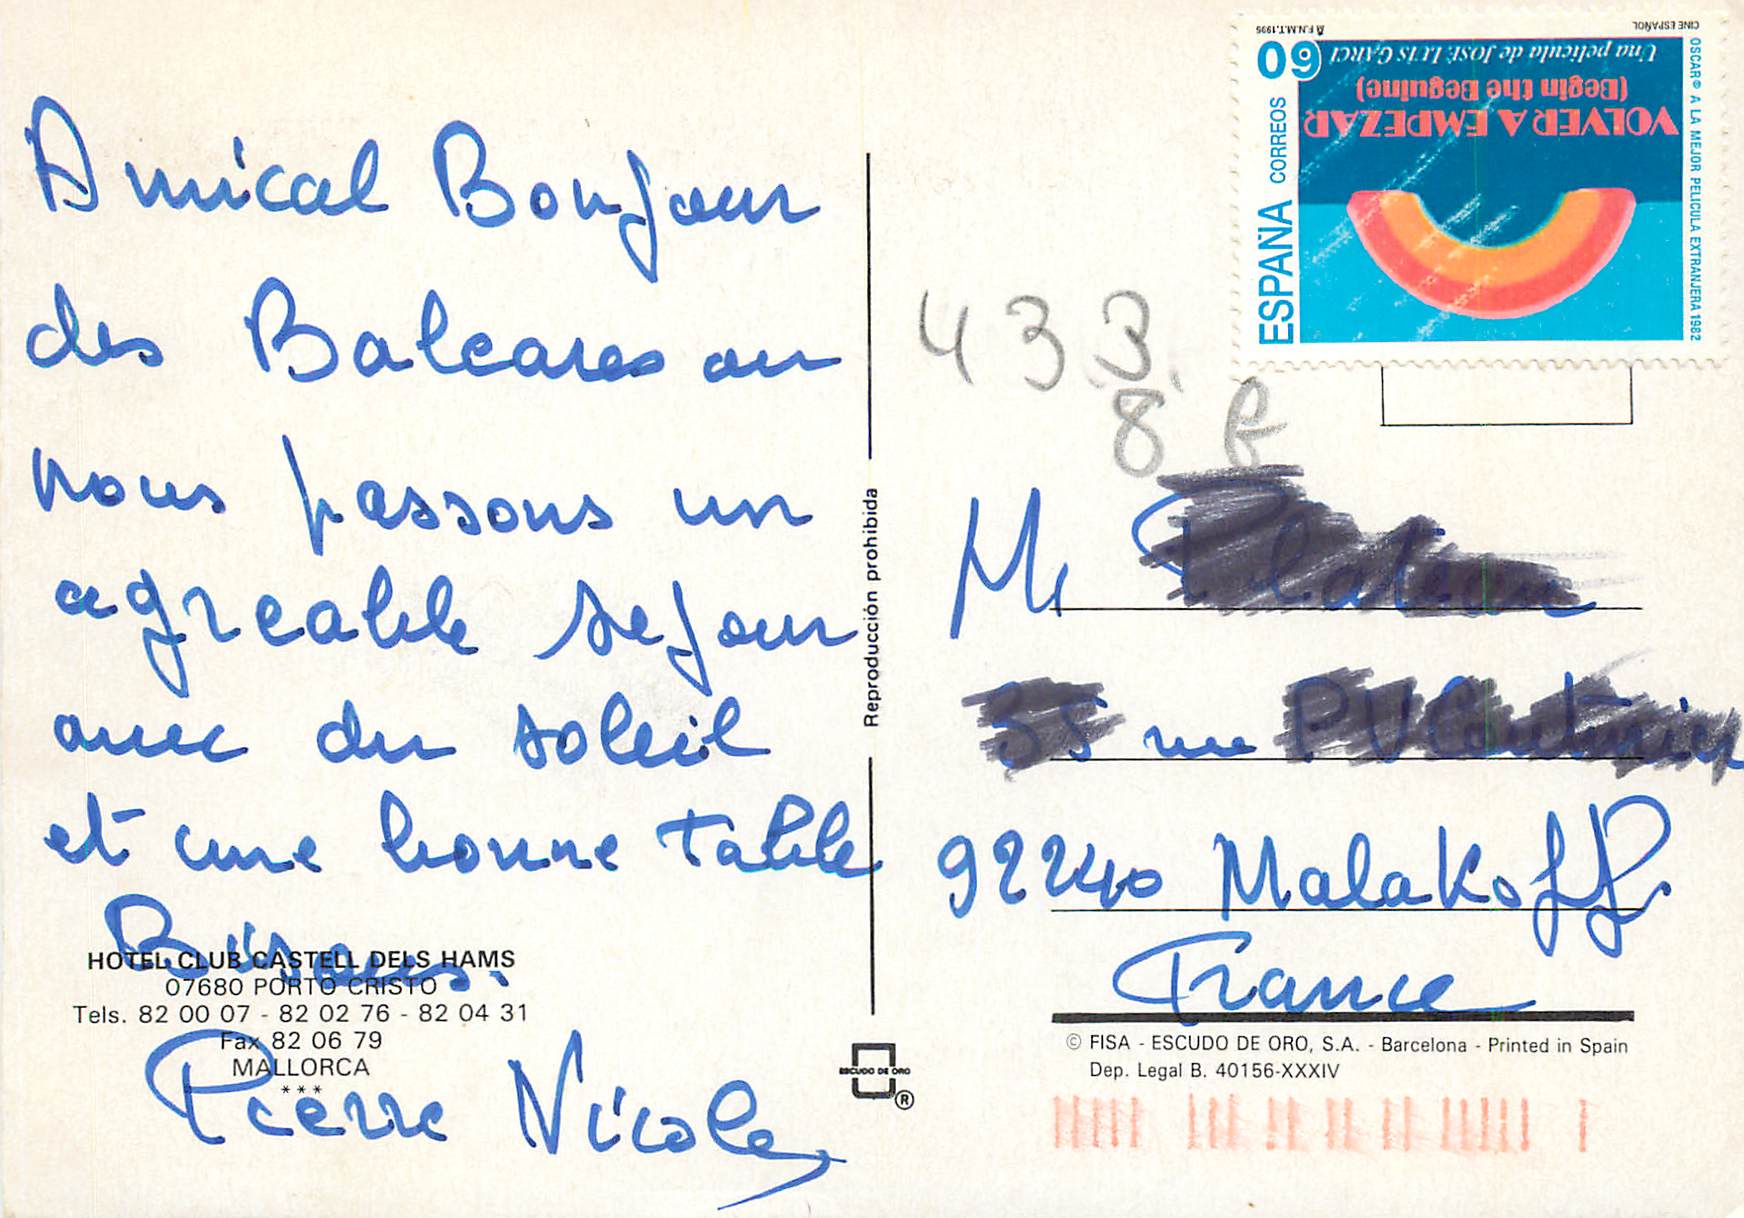 Amical Bonjour
des Baleares ou
nous passons un
agreable sejour
avec du soleil
et une bonne table
Bisous.
Pierre Nicole
HOTEL CLUB CASTELL DELS HAMS
07680 PORTO CRISTO
Tels. 82 00 07 - 82 02 76 - 82 04 31
Fax 82 06 79
MALLORCA
***
Reproducción prohibida
ESCUDO DE ORO
®
CINE ESPAÑOL
F.N.M.T. 1995
60
ESPAÑA CORREOS
Una película de JOSE LUIS GARCI
(Begin the Beguine)
VOLVER A EMPEZAR
OSCAR® A LA MEJOR PELICULA EXTRANJERA 1982
433
8 F
M
rue
92240 Malakoff
France
© FISA - ESCUDO DE ORO, S.A. - Barcelona - Printed in Spain
Dep. Legal B. 40156-XXXIV